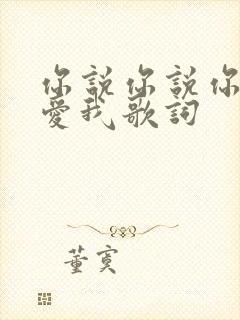 你說你說你
愛我歌詞
董寞